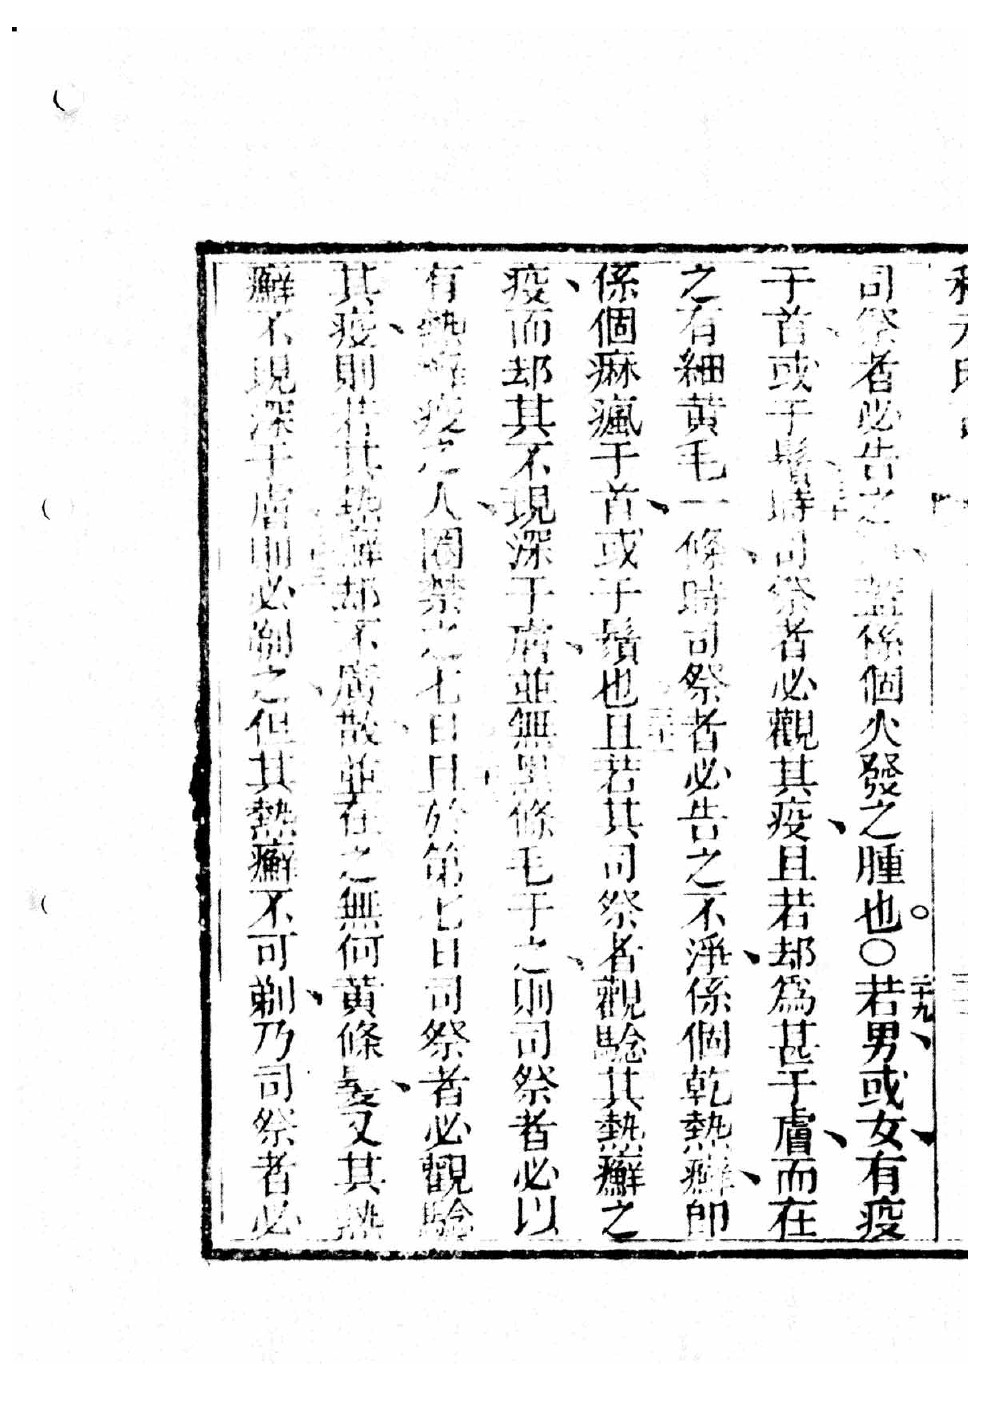 司祭者必告之蓋係個火發之腫也。〇二十九若男或女有疫
于首或于鬍時司祭者必觀其疫、且若却爲甚于膚、而在
之有細黃毛一條、時司祭者必告之不淨、係個乾熱癬、即
係個痲瘋于首、或于鬚也且若其司祭者觀騐其熱癬之
疫、而却其不現深于膚、並無黑條毛于之、則司祭者必以
有熱癬疫之人、圈禁之七日且於第七日司祭者必觀騐
其疫、則若其熱癬却不廣散、並在之無何黃條髮、又其熱
癬不現深于膚則必剃之、但其熱癬不可剃、乃司祭者必